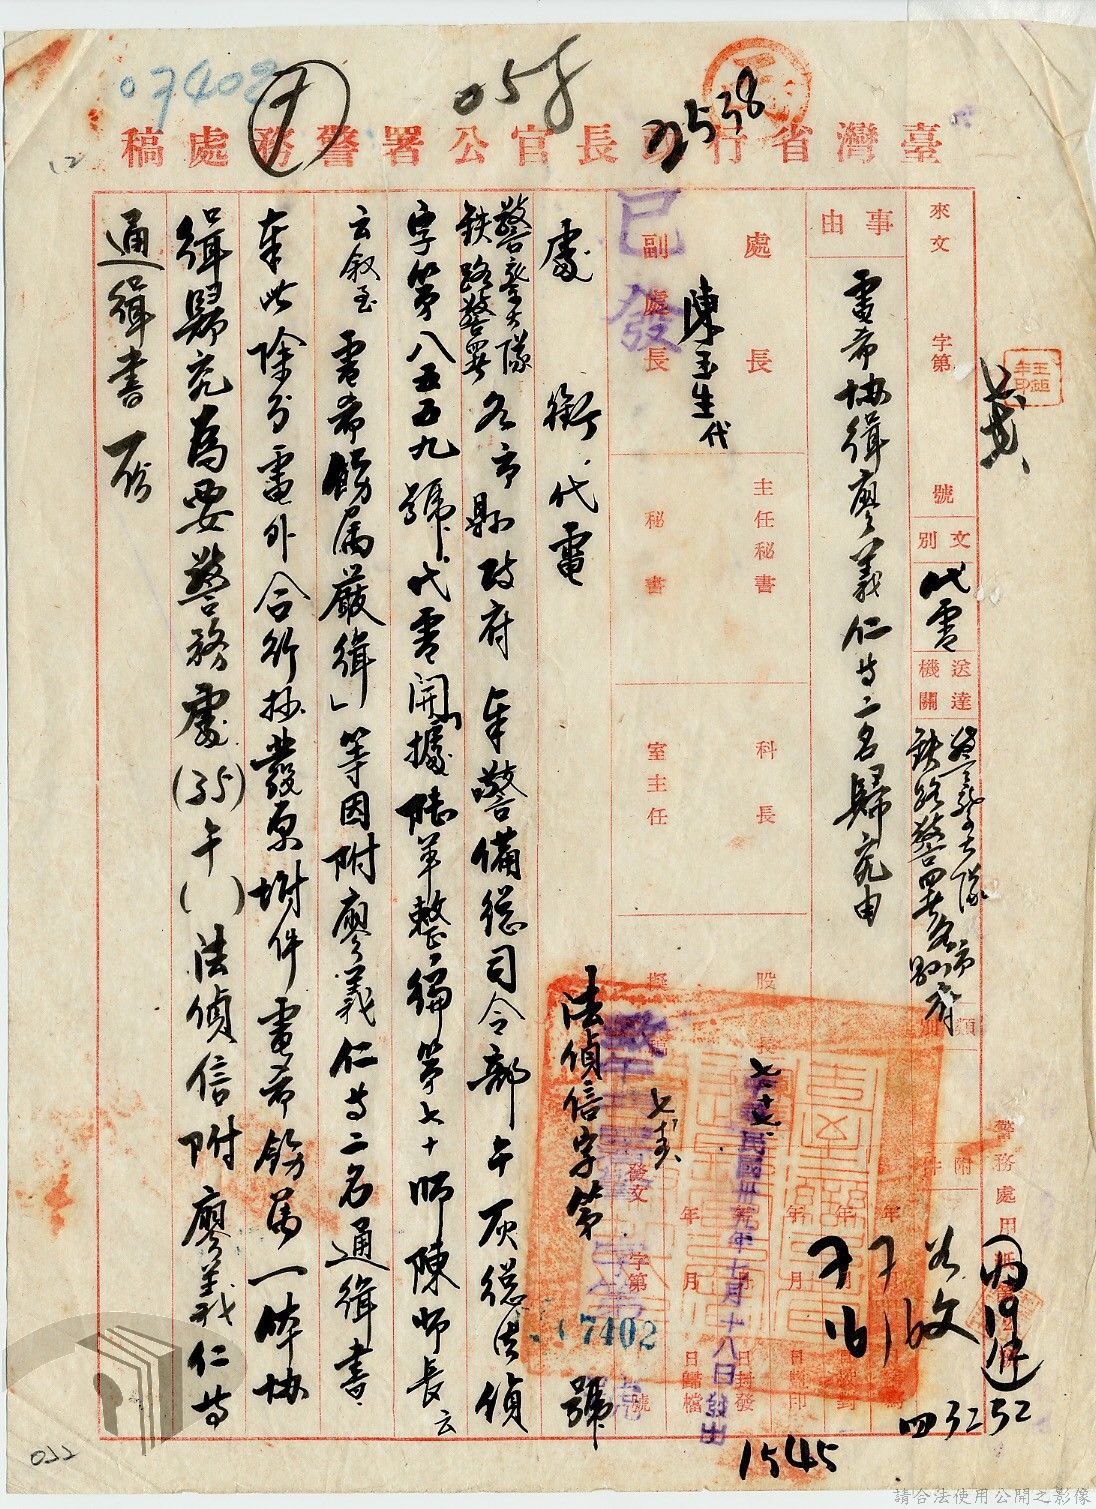 07402
058
02538
臺灣省行長官公署警務處稿
來文 字第 號
文別 代電
送達機關 鉄路警署各市縣府
附件
事由 電希協緝廖義仁等二名歸究由
處長
副處長
陳玉生代
已發
主任秘書
秘書
科長
室主任
股長
中華民國卅五年七月十八日發出
年月日封發
年月日歸檔
發文 字第 07402 號
法偵信字第 號
處銜代電
警察大隊
鉄路警署
各市縣政府 奉警備總司令部午灰總法偵
字第八五五九號代電開「據陸軍整編第七十師陳師長云
云叙至電希飭属嚴緝」等因附廖義仁等二名通緝書
奉此除分電外合行抄發原附件電希飭属一体協
緝歸究為要警務處(35)午( )法偵信附廖義仁等
通緝書一份
警務處用紙
1545
四3252
032
請合法使用公開之影像